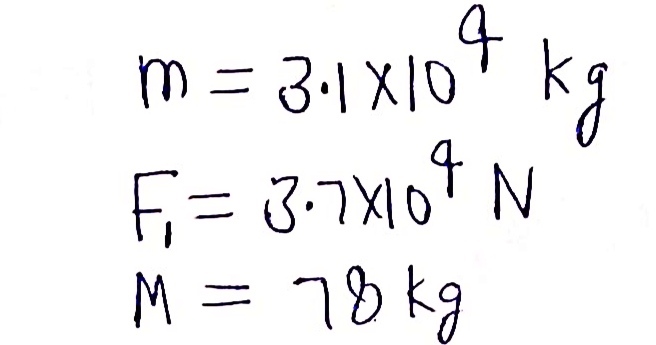 m = 3.1 X 10⁴ kg
F₁ = 3.7 X 10⁴ N
M = 78 kg